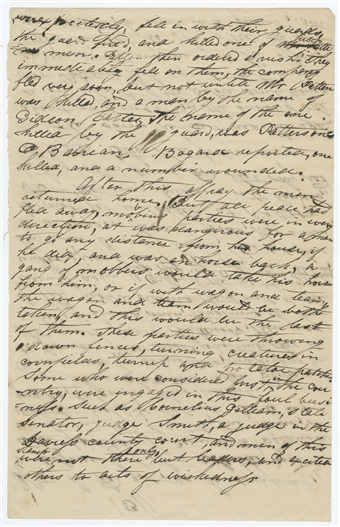 unexpectedly, fell in with their guards,
the guard fired, and killed one of
men. then ordered a rush; they
immediately fell on them, the company
fled very soon, but not until Mr Patten
was killed, and a man by the name of
Gideon Carter, the name of the one
killed by the guard, was Patterson
Obanian. Bogard reported one
killed, and a number wounded.
After this affray the men
returned home, But all who had
fled away, mobing parties were in every
direction, it was dangerous for a man
to go any distance from his house, if
he did, and was on horse back, a
gang of mobbers would take his horse
from him, or if with wagon and team
the wagon and team would be both
taken, and this would be the last
of them. These parties were throwing
down fences, turning creatures in
cornfields, turnip and potatoe patches
Some who were considered first in the cou-
ntry, were engaged in this foul busi
ness. Such as Cornelius Gilliam, state
senator, judge Smith, a judge in the
Daviess county court and men of this
stamp were not there only, but leaders, and excited
others to acts of wickedness